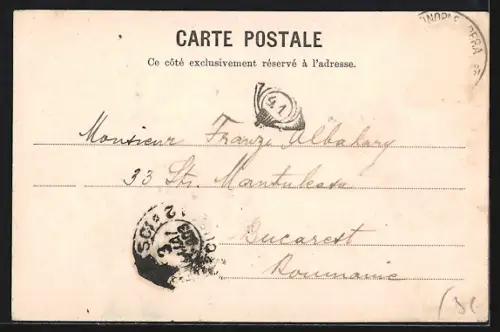 CARTE POSTALE
Ce côté exclusivement réservé à l'adresse.
PERA
41
Monsieur Franz Albahary
33 Str. Mantuleasa
Bucarest
Roumanie